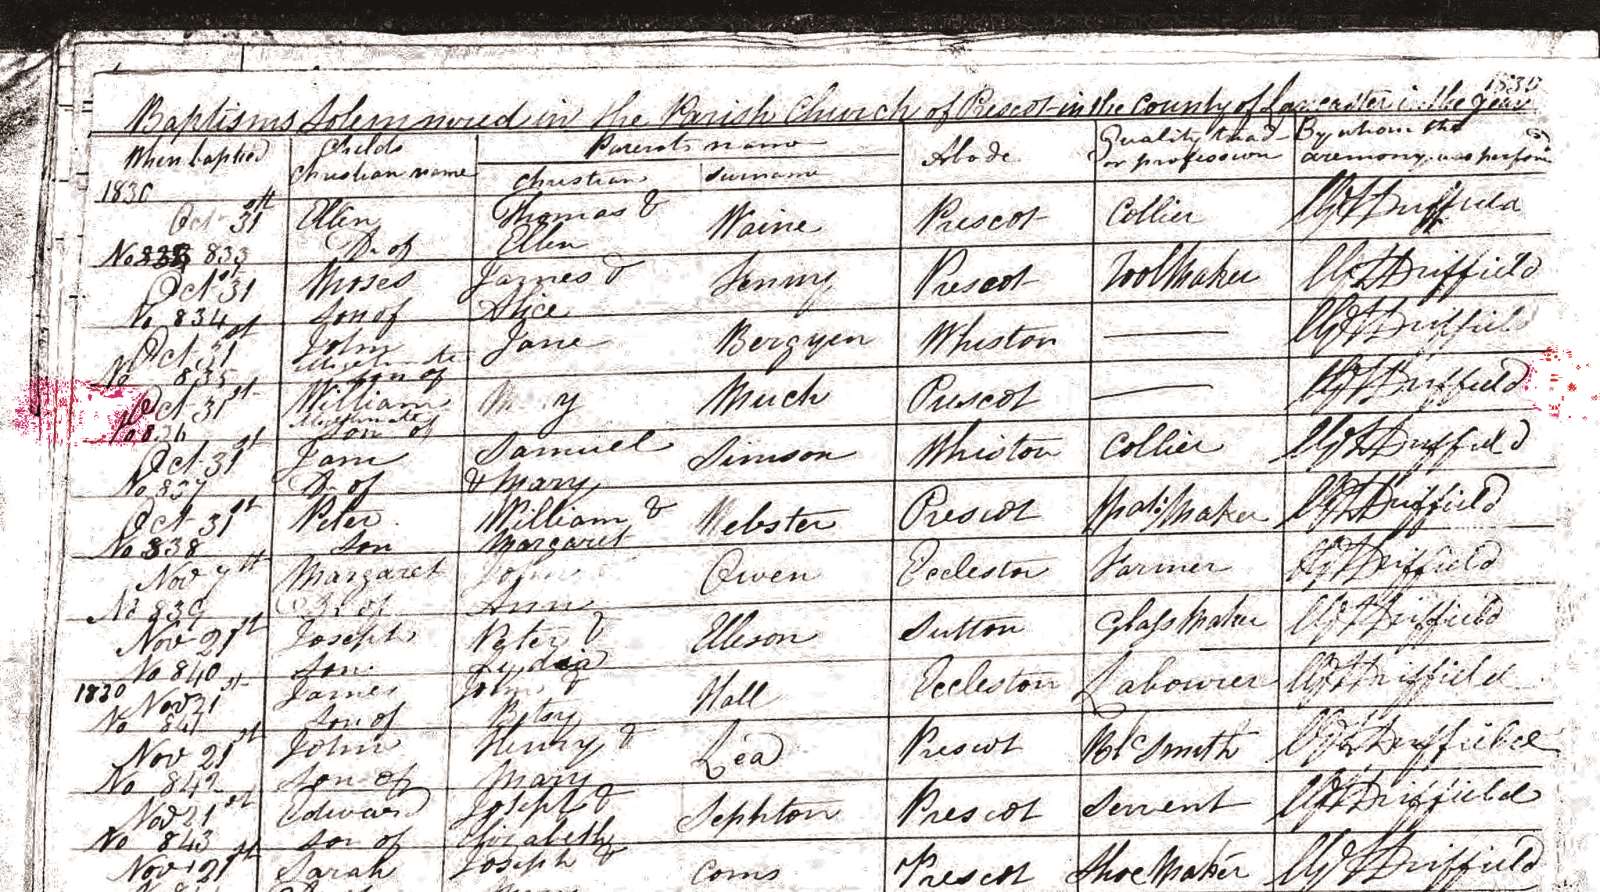 1830
Baptisms Solemnized in the Parish Church of Prescot in the County of Lancaster in the year
When baptied Childs Christian name Parents name Abode Quality trad or profession By whom the ceremony was perform
christian surname
1830
Oct 31st Ellen Thomas & Waine Prescot Collier Driffield
No 833 Dr of Ellen
Oct 31st Moses James & Jenny Prescot Tool Maker Driffield
No 834 Son of Alice
Oct 31st John Jane Bergyen Whiston — Driffield
No 835 Son of
Oct 31st William Much Prescot — Driffield
No 836 Son of
Oct 31st Jane Samuel Simson Whiston Collier Driffield
No 837 Dr of & Mary
Oct 31st Peter William & Webster Prescot Maker Driffield
No 838 Son Margaret
Nov 7th Margaret John & Owen Eccleston Farmer Driffield
No 839 Dr of Ann
Nov 21st Joseph Peter & Elleson Sutton Glass Maker Driffield
No 840 Son Lydia
1830 Nov 21st James John & Hall Eccleston Labourer Driffield
No 841 Son of Betsy
Nov 21st John Henry & Lea Prescot Blk Smith Driffield
No 842 Son of Mary
Nov 21st Edward Joseph & Sephton Prescot Servent Driffield
No 843 Son of Elizabeth
Nov 21st Sarah Joseph & Coms Prescot Shoe Maker Driffield